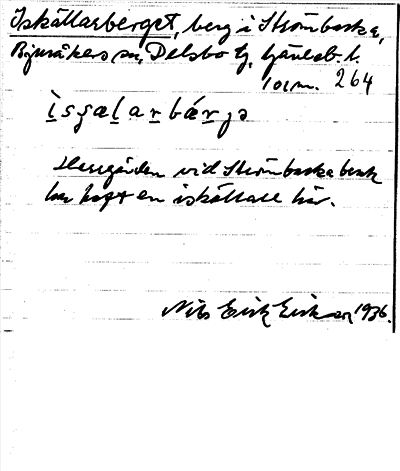 Iskällarberget, berg i Strömbacka,
Bjuråkers sn, Delsbo tg, Gävleb. l.
264
ìsɕælarbárjə
Herrgården vid Strömbacka bruk
har haft en iskällare här.
Nils Erik Eriksson 1936.